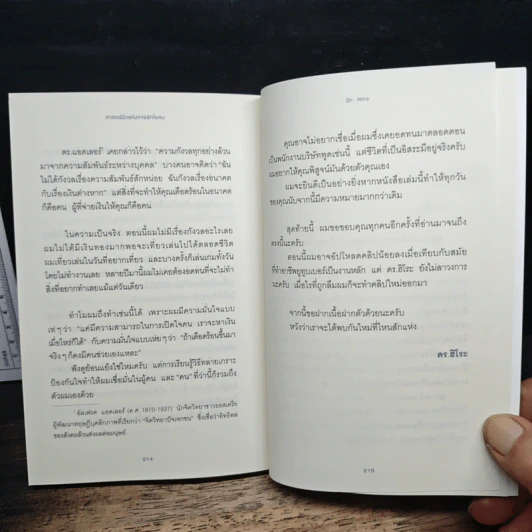 ศาสตร์มืดแห่งการชักใยคน
ดร.แอดเลอร์* เคยกล่าวไว้ว่า “ความกังวลทุกอย่างล้วน
มาจากความสัมพันธ์ระหว่างบุคคล” บางคนอาจคิดว่า “ฉัน
ไม่ได้กังวลเรื่องความสัมพันธ์สักหน่อย ฉันกังวลเรื่องอนาคต
กับเรื่องเงินต่างหาก” แต่สิ่งที่จะทำให้คุณเดือดร้อนในอนาคต
ก็คือคน ผู้ที่จ่ายเงินให้คุณก็คือคน
ในความเป็นจริง ตอนนี้ผมไม่มีเรื่องกังวลอะไรเลย
ผมไม่ได้มีเงินทองมากพอจะเที่ยวเล่นไปได้ตลอดชีวิต
ผมเที่ยวเล่นในวันที่อยากเที่ยว และบางครั้งก็เล่นเกมทั้งวัน
โดยไม่ทำงานเลย หลายปีมานี้ผมไม่เคยต้องอดทนที่จะไม่ทำ
สิ่งที่อยากทำเลยแม้แต่วันเดียว
ทำไมผมถึงทำเช่นนี้ได้ เพราะผมมีความมั่นใจแบบ
เท่ๆ ว่า “แค่มีความสามารถในการเปิดใจคน เราจะหาเงิน
เมื่อไหร่ก็ได้” กับความมั่นใจแบบเห่ยๆ ว่า “ถ้าเดือดร้อนขึ้นมา
จริงๆ ก็คงมีคนช่วยเองแหละ”
ฟังดูย้อนแย้งใช่ไหมครับ แต่การเรียนรู้วิธีทลายเกราะ
ป้องกันใจทำให้ผมเชื่อมั่นในผู้คน และ “คน” ที่ว่านี้ก็รวมถึง
ตัวผมเองด้วย
* อัลเฟรด แอดเลอร์ (ค.ศ. 1870-1937) นักจิตวิทยาชาวออสเตรีย
ผู้พัฒนาทฤษฎีบุคลิกภาพที่เรียกว่า “จิตวิทยาปัจเจกชน” ซึ่งเชื่อว่าอิทธิพล
ของสังคมล้วนส่งผลต่อมนุษย์
๒๑๔
Dr. Hiro
คุณอาจไม่อยากเชื่อเมื่อผมซึ่งเคยอดทนมาตลอดตอน
เป็นพนักงานบริษัทพูดเช่นนี้ แต่ชีวิตที่เป็นอิสระมีอยู่จริงครับ
ผมอยากให้คุณพิสูจน์มันด้วยตัวคุณเอง
ผมจะยินดีเป็นอย่างยิ่งหากหนังสือเล่มนี้ทำให้ทุกวัน
ของคุณนับจากนี้มีความหมายมากกว่าเดิม
สุดท้ายนี้ ผมขอขอบคุณทุกคนอีกครั้งที่อ่านมาจนถึง
ตรงนี้นะครับ
ตอนนี้ผมอาจอัปโหลดคลิปน้อยลงเมื่อเทียบกับสมัย
ที่ทำอาชีพยูทูบเบอร์เป็นงานหลัก แต่ ดร.ฮิโระ ยังไม่ลาวงการ
นะครับ เมื่อไรที่ถูกลืมผมก็จะทำคลิปใหม่ออกมา
จากนี้ขอฝากเนื้อฝากตัวด้วยนะครับ
หวังว่าเราจะได้พบกันใหม่ที่ไหนสักแห่ง
ดร.ฮิโระ
๒๑๕